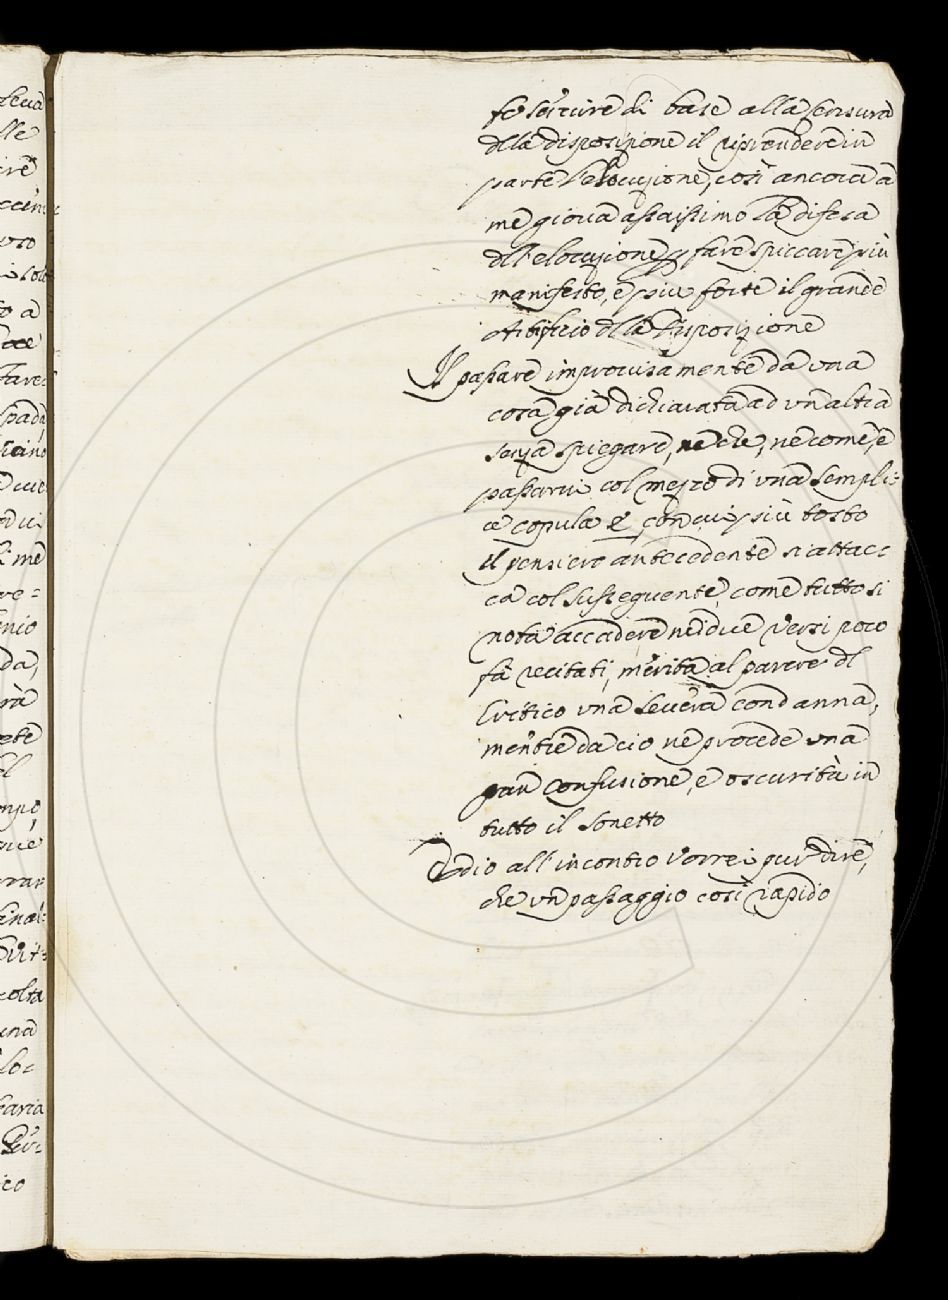 fe servire di base alla censura
dlla disposizione il riprendere in
parte l'elocuzione, così ancora a
me giova assaissimo la difesa
dll'elocuzione p fare spiccare più
manifesto, e più forte il grande
Artificio dlla Disposizione
Il passare improvisamente da una
cosa già dichiarata ad un altra
senza spiegare, ne che, ne come, e
passarvi col mezzo di una sempli=
ce copula è, con cui più tosto
il pensiero antecedente si attac=
ca col susseguente, come tutto si
nota accadere ne i due versi poco
fà recitati, merita al parere dl
Critico una severa condanna,
mentre da cio ne procede una
gran confusione, e oscurità in
tutto il sonetto
Ed io all'incontro vorrei pur dire,
che un passaggio così rapido
lle
uso
to a
Tare=
spada
li me
re=
nio
da,
rà
ete
empo
colta
una
lo=
co